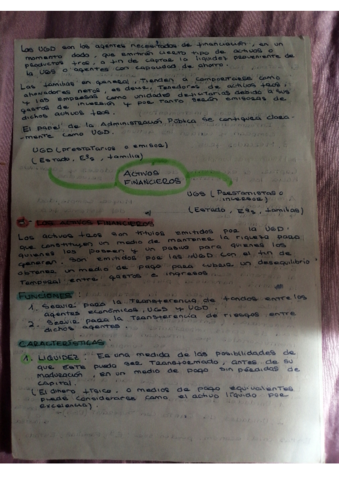 Las UGD son los agentes necesitados de financiación, en un
momento dado, que emitirán cierto tipo de activos o
productos fros, a fin de captar la liquidez proveniente de
la UGS o agentes con capacidad de ahorro.
Las familias en general, Tienden a comportarse como
ahorradores netos, es decir, Tenedoras de activos fros,
y las empresas como unidades deficitarias debido a sus
gastos de inversión y por tanto serán emisoras de
dichos activos fros.
El papel de la Administración Pública se configura clara-
mente como UGD.
UGD (Prestatarios o emisor)
(Estado, E²s, familia)
ACTIVOS
FINANCIEROS
UGS (Prestamistas o
inversor)
(Estado, E²s, familias)
FINANCIEROS
Los activos fros son títulos emitidos por la UGD,
que constituyen un medio de mantener la riqueza para
quienes los poseen y un pasivo para quienes los
generen. Son emitidos por las UGD con el fin de
obtener un medio de pago para cubrir un desequilibrio
Temporal entre gastos e ingresos.
FUNCIONES:
1. Servir para la Transferencia de fondos entre los
agentes económicos, UGS y UGD.
2. Servir para la Transferencia de riesgos entre
dichos agentes.
CARACTERÍSTICAS
1. LIQUIDEZ: Es una medida de las posibilidades de
que éste pueda ser Transformado, antes de su
maduración, en un medio de pago sin pérdidas de
capital.
(El dinero físico, o medios de pago equivalentes
puede considerarse como el activo líquido por
excelencia)